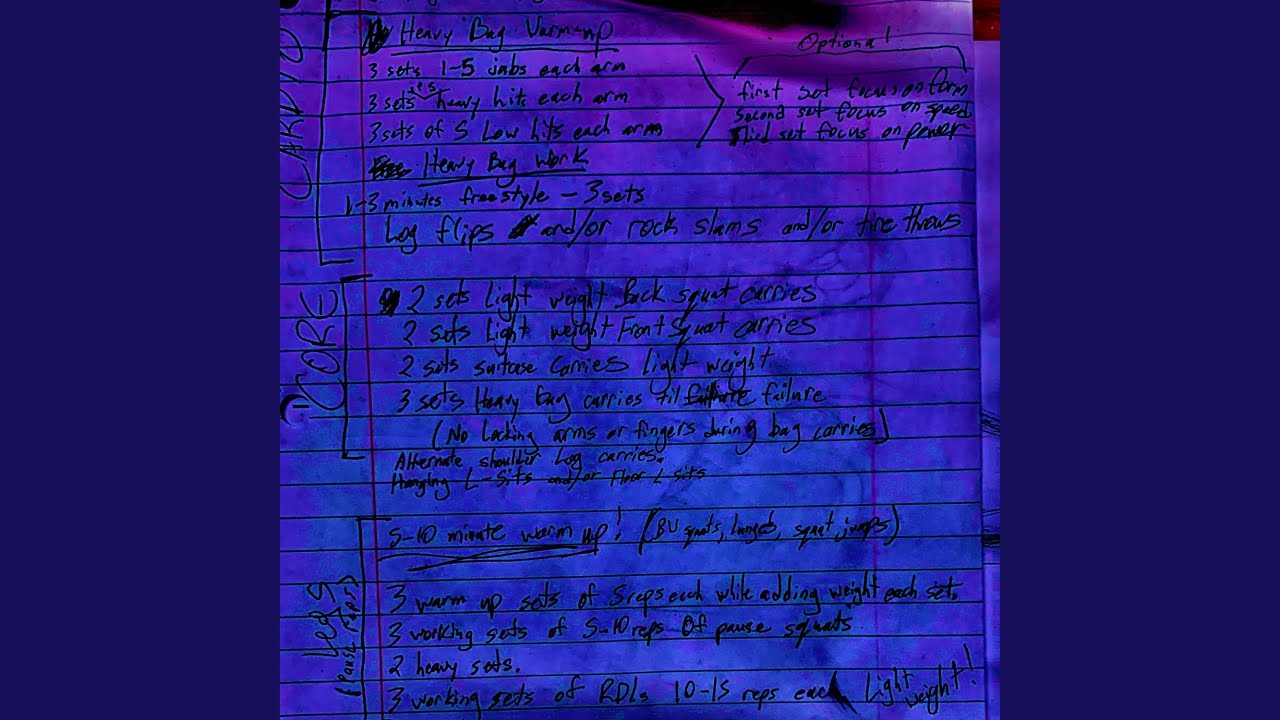 CARDIO
Heavy Bag Warm-up
3 sets 1-5 jabs each arm
3 sets of 5 heavy hits each arm
3 sets of 5 Low hits each arm
Optional
first set focus on form
Second set focus on speed
Third set focus on power
Heavy Bag Work
1-3 minutes freestyle - 3 sets
Log flips and/or rock slams and/or tire throws
CORE
2 sets Light weight Back squat carries
2 sets Light weight Front Squat carries
2 sets suitcase carries light weight
3 sets Heavy bag carries til failure
(No Locking arms or fingers during bag carries)
Alternate shoulder Log carries.
Hanging L-Sits and/or Floor L sits
Legs
(pause reps)
5-10 minute warm up! (BW squats, lunges, squat jumps)
3 warm up sets of 5 reps each while adding weight each set.
3 working sets of 5-10 reps Of pause squats
2 heavy sets.
3 working sets of RDLs 10-15 reps each Light weight!